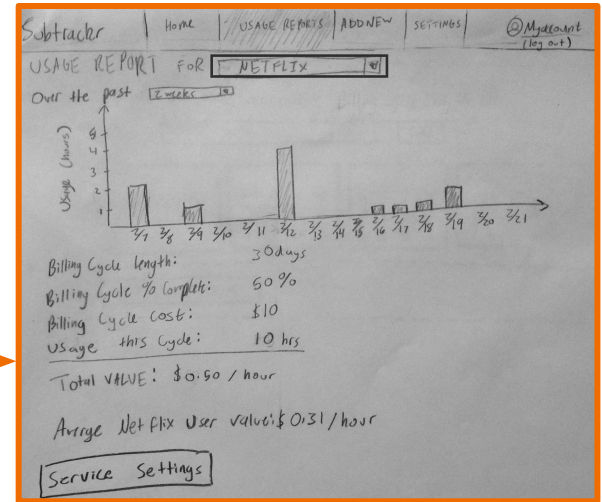 Subtrackr
Home
USAGE REPORTS
ADD NEW
SETTINGS
My account
(log out)
USAGE REPORT FOR NETFLIX
Over the past 2 weeks
Usage (hours)
5
4
3
2
1
2/7 2/8 2/9 2/10 2/11 2/12 2/13 2/14 2/15 2/16 2/17 2/18 2/19 2/20 2/21
Billing Cycle length: 30days
Billing Cycle % Complete: 50%
Billing Cycle cost: $10
Usage this cycle: 10 hrs
Total VALUE: $0.50 / hour
Average Netflix User value: $0.31/hour
Service Settings